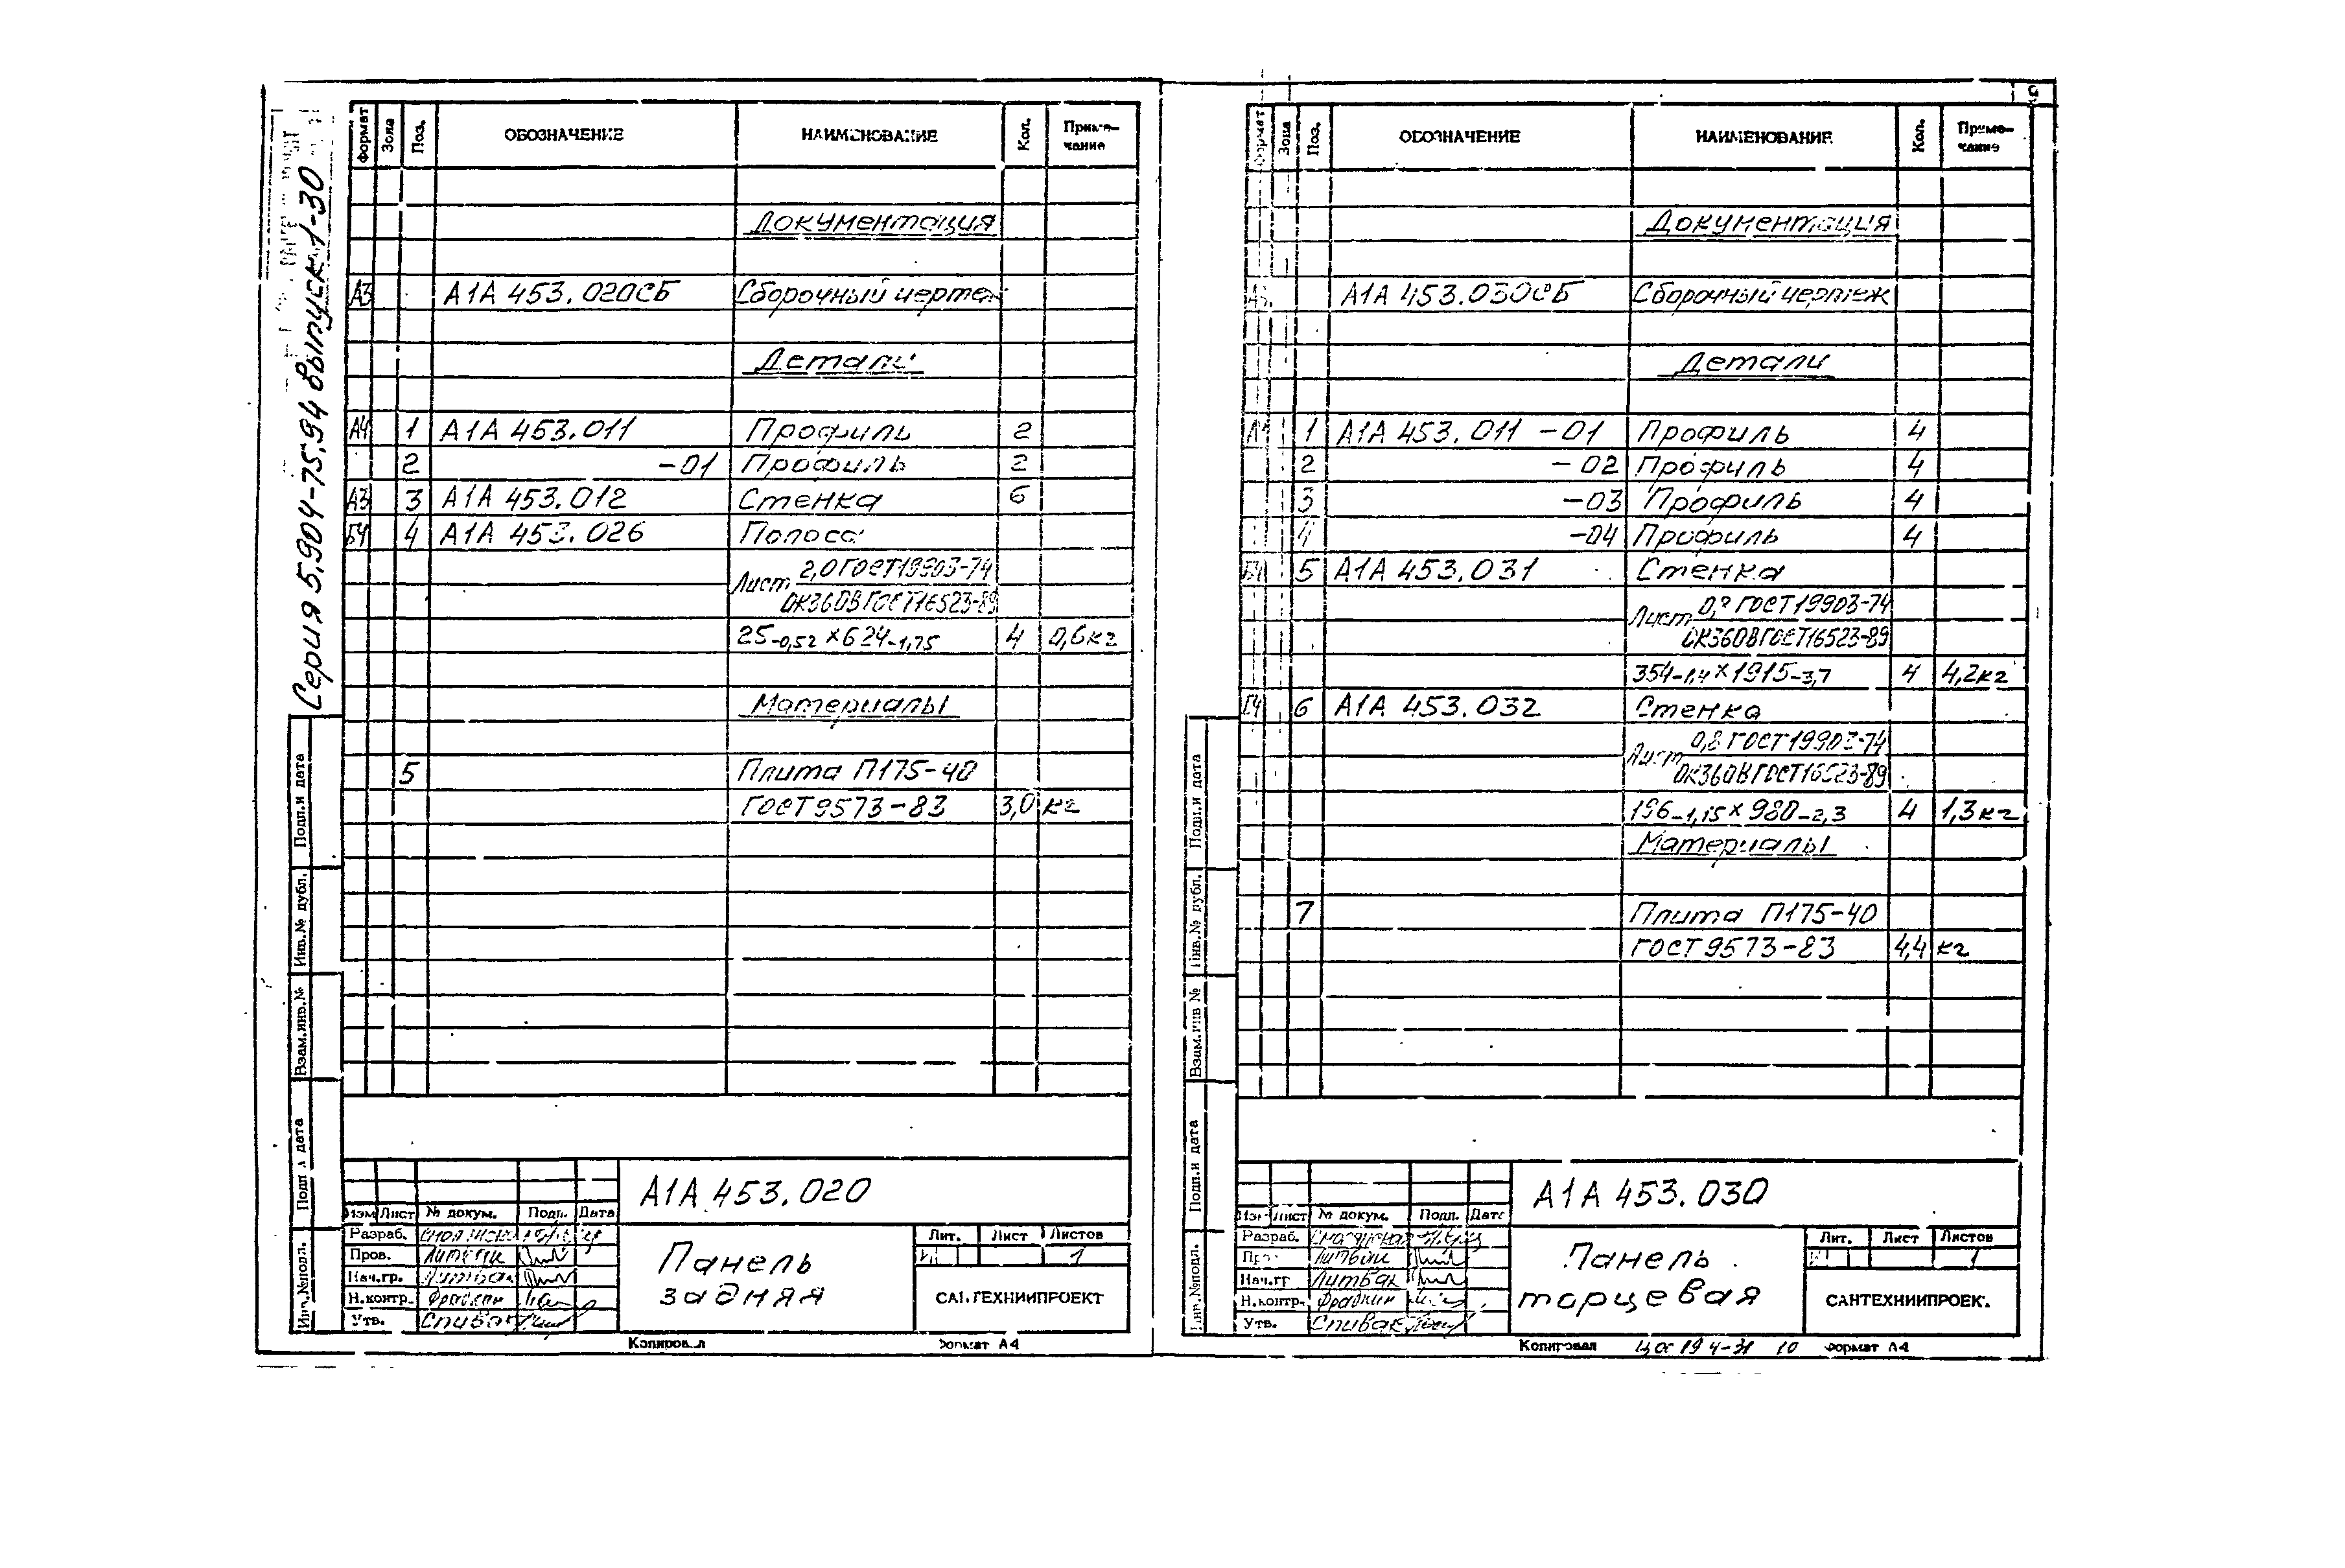 Серия 5.904-75.94 выпуск 1-30
Формат Зона Поз. ОБОЗНАЧЕНИЕ НАИМЕНОВАНИЕ Кол. Приме-
чание
Документация
А3 А1А 453.020СБ Сборочный чертеж
Детали
А4 1 А1А 453.011 Профиль 2
2 -01 Профиль 2
А3 3 А1А 453.012 Стенка 6
БЧ 4 А1А 453.026 Полоса
Лист 2,0 ГОСТ19903-74
ОК360В ГОСТ16523-89
25-0,52 х 624-1,75 4 0,6кг
Материалы
5 Плита П175-40
ГОСТ 9573-83 3,0 кг
Подп.и дата
Инв.№ дубл.
Взам.инв.№
Подп.и дата
Инв.№подл.
А1А 453.020
Изм Лист № докум. Подп. Дата
Разраб.
Пров.
Нач.гр. Литвак
Н.контр. Фрадкин
Утв. Спивак
Панель
задняя
Лит. Лист Листов
1
САНТЕХНИИПРОЕКТ
Копировал Формат А4
Формат Зона Поз. ОБОЗНАЧЕНИЕ НАИМЕНОВАНИЕ Кол. Приме-
чание
Документация
А3 А1А 453.030СБ Сборочный чертеж
Детали
А4 1 А1А 453.011 -01 Профиль 4
2 -02 Профиль 4
3 -03 Профиль 4
4 -04 Профиль 4
БЧ 5 А1А 453.031 Стенка
Лист 0,8 ГОСТ19903-74
ОК360В ГОСТ16523-89
354-1,4 х 1915-3,7 4 4,2кг
БЧ 6 А1А 453.032 Стенка
Лист 0,8 ГОСТ19903-74
ОК360В ГОСТ16523-89
196-1,15 х 980-2,3 4 1,3кг
Материалы
7 Плита П175-40
ГОСТ 9573-83 4,4 кг
Подп.и дата
Инв.№ дубл.
Взам.инв №
Подп.и дата
Инв.№подл.
А1А 453.030
Изм Лист № докум. Подп. Дата
Разраб.
Пров.
Нач.гр Литвак
Н.контр. Фрадкин
Утв. Спивак
Панель
торцевая
Лит. Лист Листов
1
САНТЕХНИИПРОЕКТ
Копировал 10 Формат А4